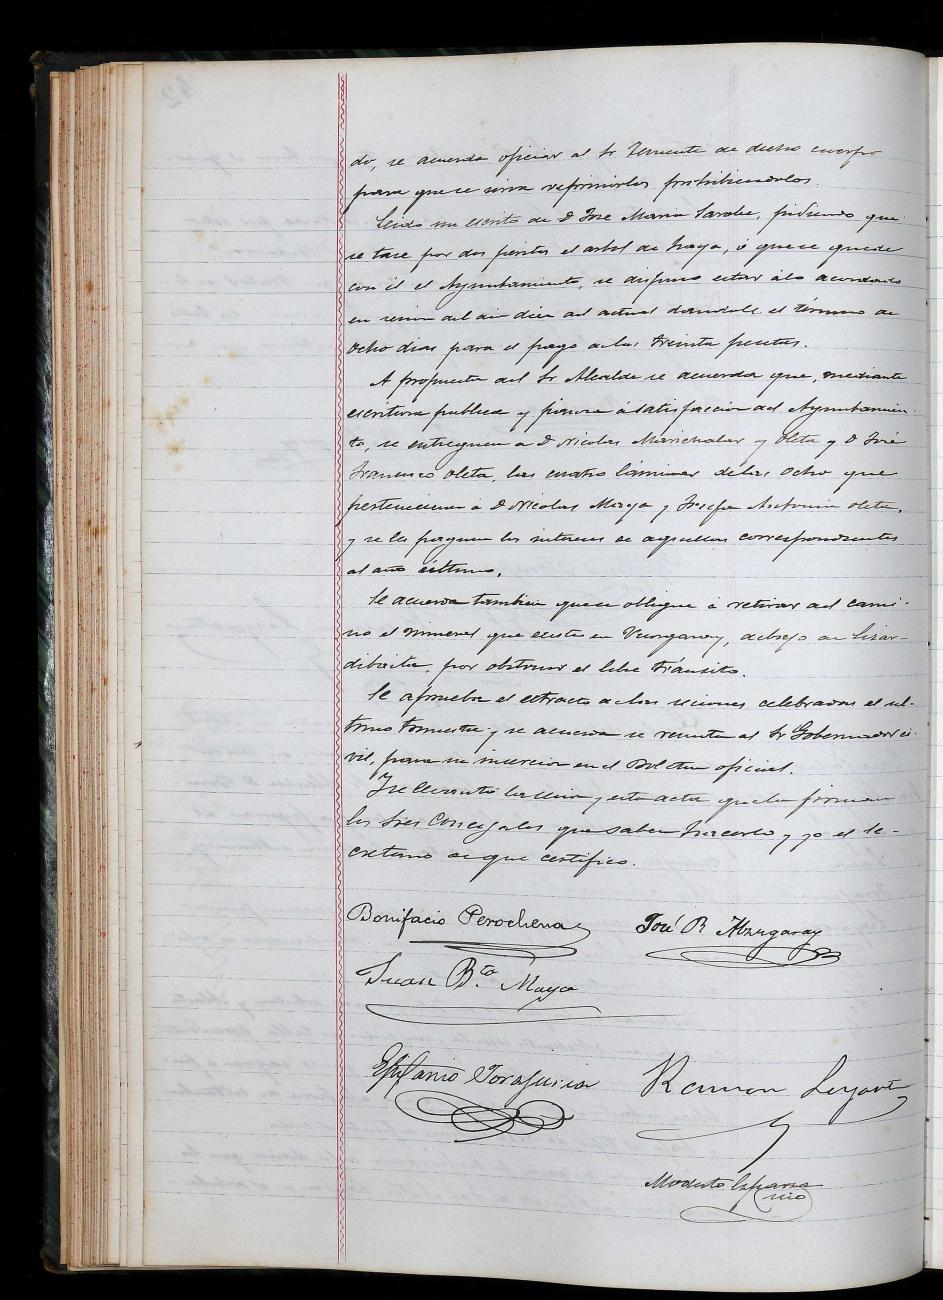 do, se acuerda oficiar al Sr Teniente de dicho cuerpo
para que se sirva reprimirlos prohibiendolos.
Leido un escrito de D José Maria Sarobe, pidiendo que
se tase por dos peritos el arbol de haya, ó que se quede
con él el Ayuntamiento, se dispuso estar á lo acordado
en sesion del dia diez del actual dandole el término de
ocho dias para el pago de las treinta pesetas.
A propuesta del Sr Alcalde se acuerda que, mediante
escritura publica y fianza á satisfaccion del Ayuntamien-
to, se entreguen a D Nicolas Marichalar y Oleta y D José
Francisco Oleta, las cuatro láminas de las ocho que
pertenecieron á D Nicolas Maya y Josefa Antonia Oleta,
y se les paguen los intereses de aquellas correspondientes
al año último.
Se acuerda tambien que se obligue á retirar del cami-
no el mineral que existe en, debajo de Lizar-
dibicita, por obstruir el libre tránsito.
Se aprueba el extracto de las sesiones celebradas el úl-
timo trimestre y se acuerda se remita al Sr Gobernador ci-
vil, para su insercion en el Boletin oficial.
Y se levantó la sesion y esta acta que la firman
los Sres Concejales que saben hacerlo y yo el Se-
cretario de que certifico.
Bonifacio Perochena
José R Abzugaray
Juan Bta Maya
Epifanio
Ramon
Modesto Esparza
srio